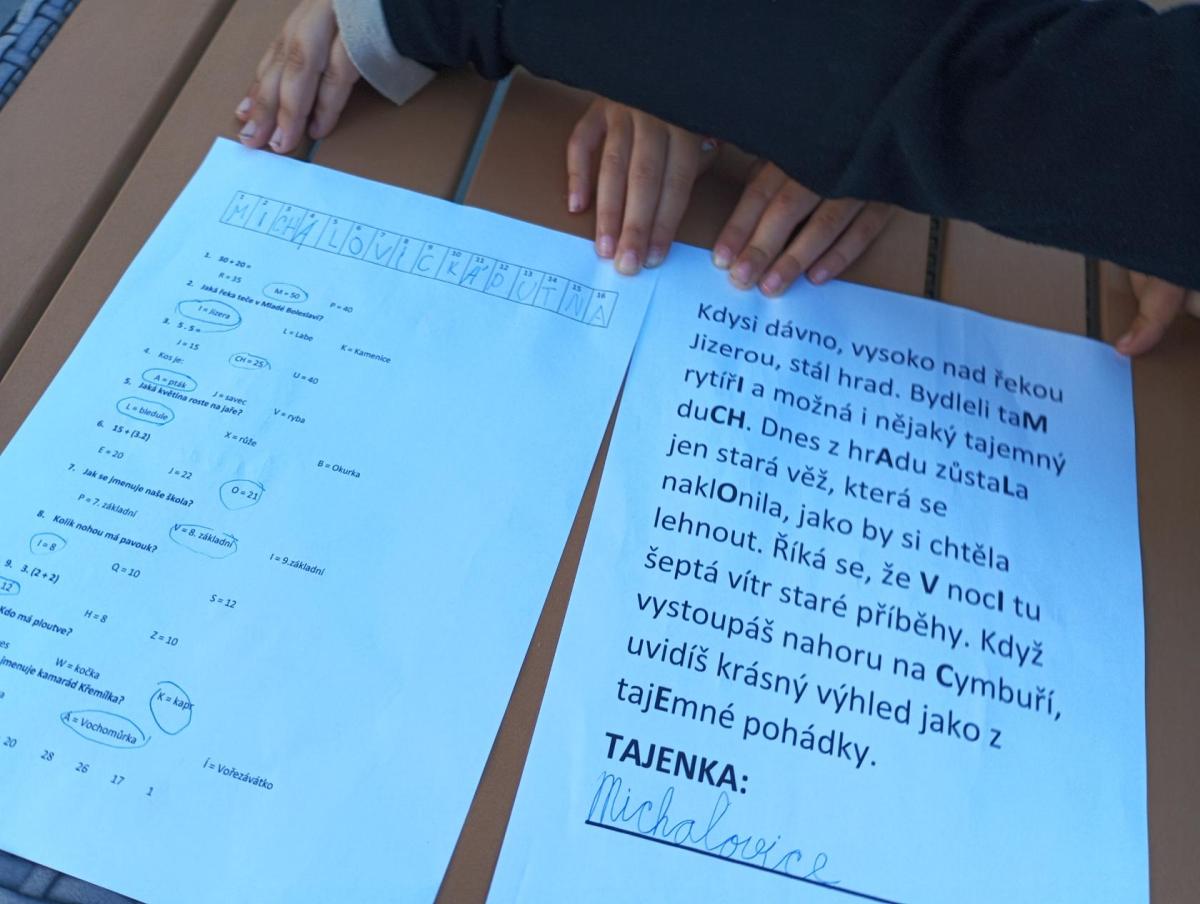 1 2 3 4 5 6 7 8 9 10 11 12 13 14 15 16
M I CH A L O V I C K Á P U T N A
1. 30 + 20 =
R = 35 M = 50 P = 40
2. Jaká řeka teče v Mladé Boleslavi?
I = Jizera L = Labe K = Kamenice
3. 5 . 5 =
J = 15 CH = 25 U = 40
4. Kos je:
A = pták J = savec V = ryba
5. Jaká květina roste na jaře?
L = bledule X = růže B = Okurka
6. 15 + (3.2)
E = 20 J = 22 O = 21
7. Jak se jmenuje naše škola?
P = 7. základní V = 8. základní I = 9.základní
8. Kolik nohou má pavouk?
I = 8 Q = 10 S = 12
9. 3. (2 + 2)
12 H = 8 Z = 10
Kdo má ploutve?
W = kočka K = kapr
jmenuje kamarád Křemílka?
A = Vochomůrka Í = Vořezávátko
20 28 26 17 1
Kdysi dávno, vysoko nad řekou
Jizerou, stál hrad. Bydleli taM
rytířI a možná i nějaký tajemný
duCH. Dnes z hrAdu zůstaLa
jen stará věž, která se
naklOnila, jako by si chtěla
lehnout. Říká se, že V nocI tu
šeptá vítr staré příběhy. Když
vystoupáš nahoru na Cymbuří,
uvidíš krásný výhled jako z
tajEmné pohádky.
TAJENKA:
Michalovice